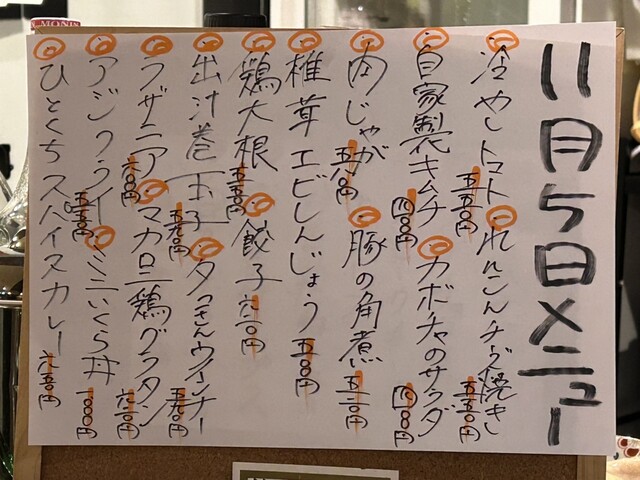 11月5日メニュー
冷やしトマト 五五〇円
れんこんチーズ焼き 五五〇円
自家製キムチ 四〇〇円
カボチャのサラダ 四〇〇円
肉じゃが 五八〇円
豚の角煮
椎茸エビしんじょう 五〇〇円
鶏大根 五五〇円
餃子
出汁巻玉子
タコさんウインナー
ラザニア 六〇〇円
マカロニ鶏グラタン
アジフライ
ミニいくら丼
ひとくちスパイスカレー